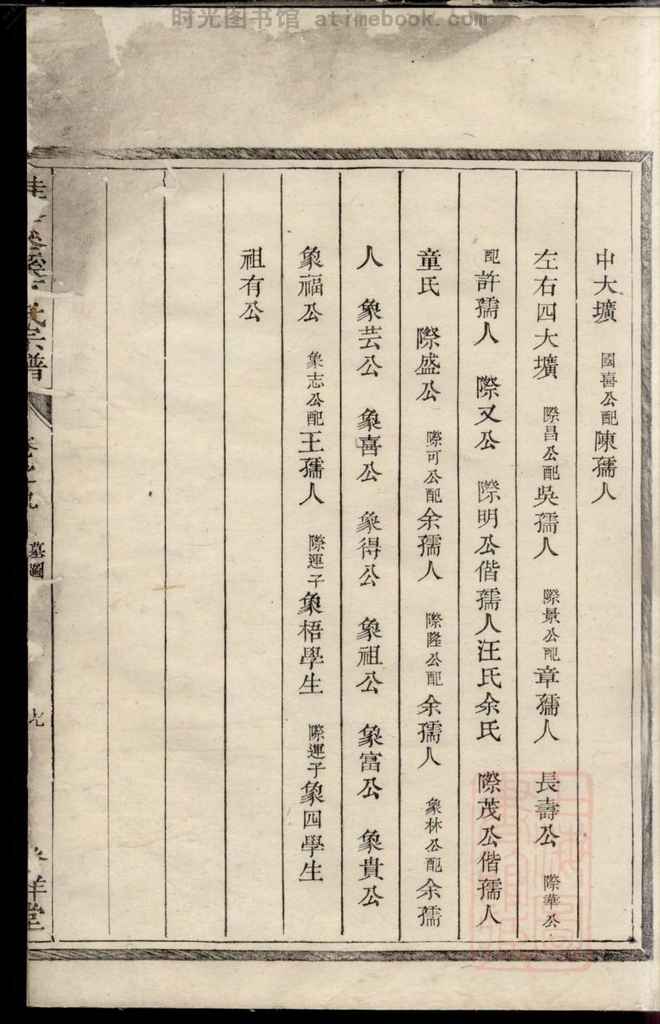 时光图书馆 atimebook.com
中大壙 國喜公配陳孺人
左右四大壙 際昌公配吳孺人 際景公配章孺人 長壽公 際華公
配許孺人 際又公 際明公偕孺人汪氏余氏 際茂公偕孺人
童氏 際盛公 際可公配余孺人 際隆公配余孺人 象林公配余孺
人 象芸公 象喜公 象得公 象祖公 象富公 象貴公
象福公 象志公配王孺人 際運子象梧學生 際運子象四學生
祖有公
氏宗譜 墓圖